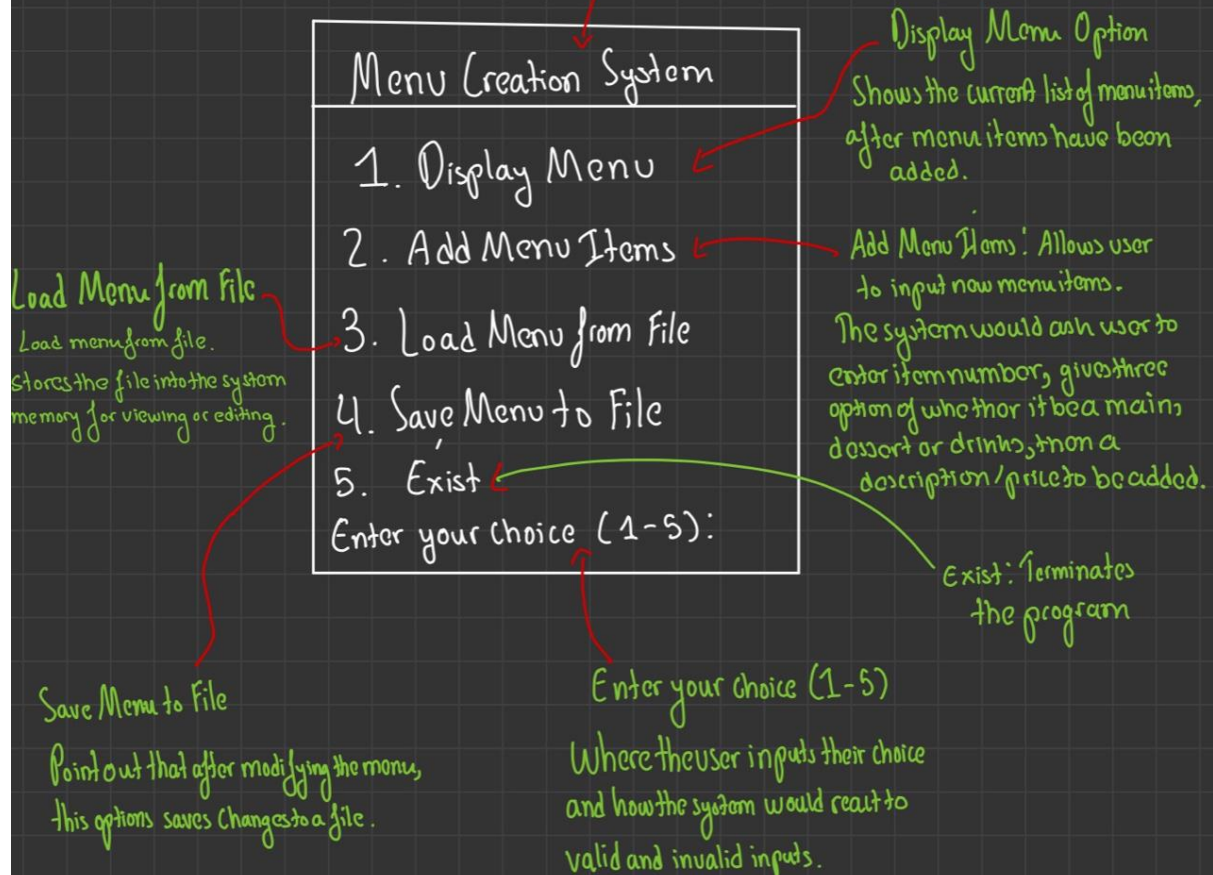 Menu Creation System
1. Display Menu
2. Add Menu Items
3. Load Menu from File
4. Save Menu to File
5. Exist
Enter your choice (1-5):
Display Menu Option
Shows the current list of menu items,
after menu items have been
added.
Add Menu Items: Allows user
to input new menu items.
The system would ask user to
enter item number, gives three
option of whether it be a main,
dessert or drinks, then a
description/price to be added.
Load Menu from File
Load menu from file.
stores the file into the system
memory for viewing or editing.
Exist: Terminates
the program
Save Menu to File
Point out that after modifying the menu,
this options saves changes to a file.
Enter your choice (1-5)
Where the user inputs their choice
and how the system would react to
valid and invalid inputs.